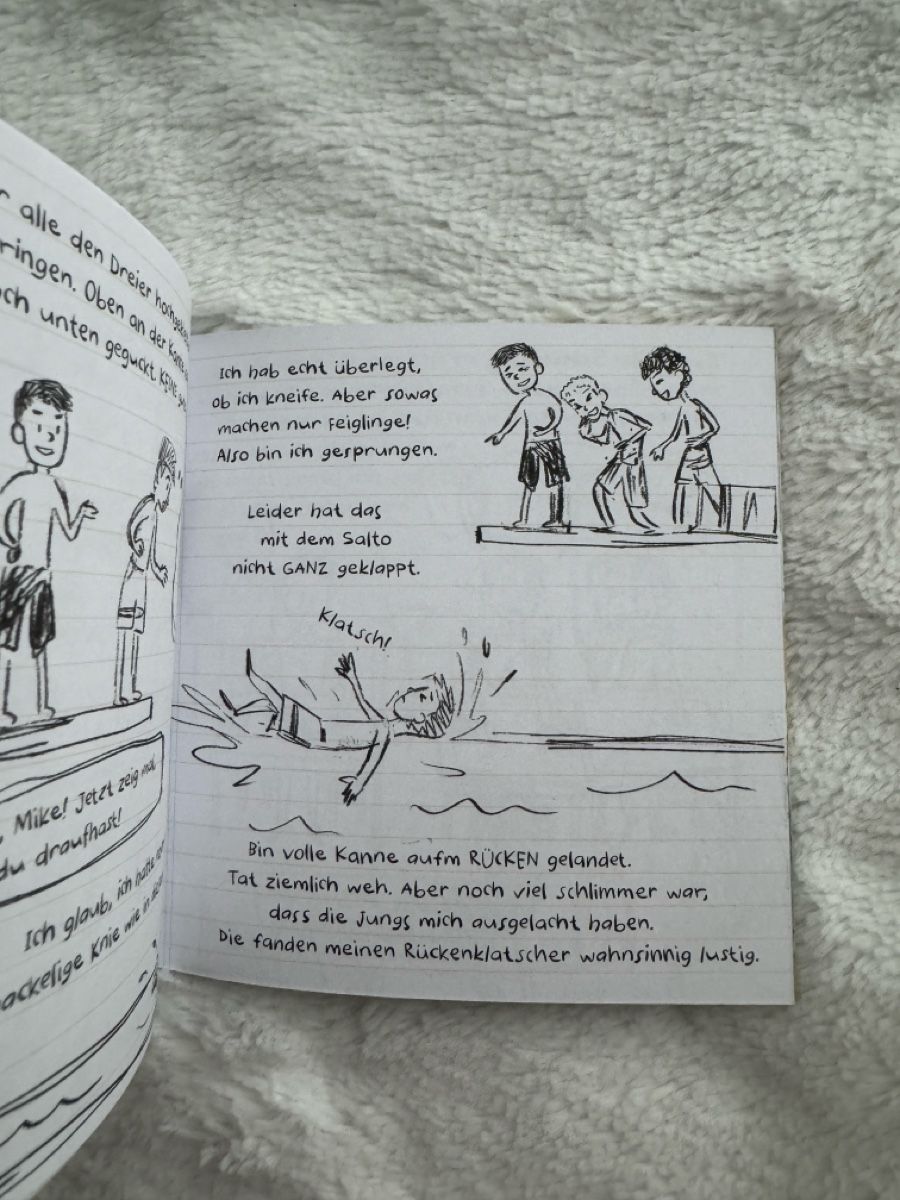 alle den Dreier
ringen. Oben an der
unten geguckt. KEINE
Mike! Jetzt zeig mal,
du draufhast!
Ich glaub, ich hatte
Knie wie in
Ich hab echt überlegt,
ob ich kneife. Aber sowas
machen nur Feiglinge!
Also bin ich gesprungen.
Leider hat das
mit dem Salto
nicht GANZ geklappt.
Klatsch!
Bin volle Kanne aufm RÜCKEN gelandet.
Tat ziemlich weh. Aber noch viel schlimmer war,
dass die Jungs mich ausgelacht haben.
Die fanden meinen Rückenklatscher wahnsinnig lustig.